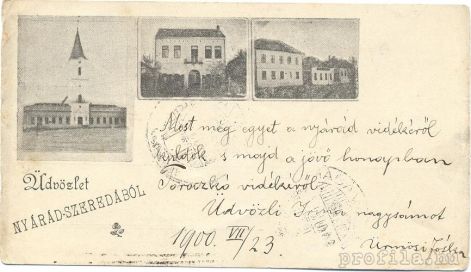 Most még egyet a nyárád vidékéről
küldök s majd a jövő honapban
Toroczkó vidékéről.
Üdvözli Irma nagysámot
Ürmösi Jóska
1900. VII/23
Üdvözlet
NYÁRÁD-SZEREDÁBÓL
profila.hu